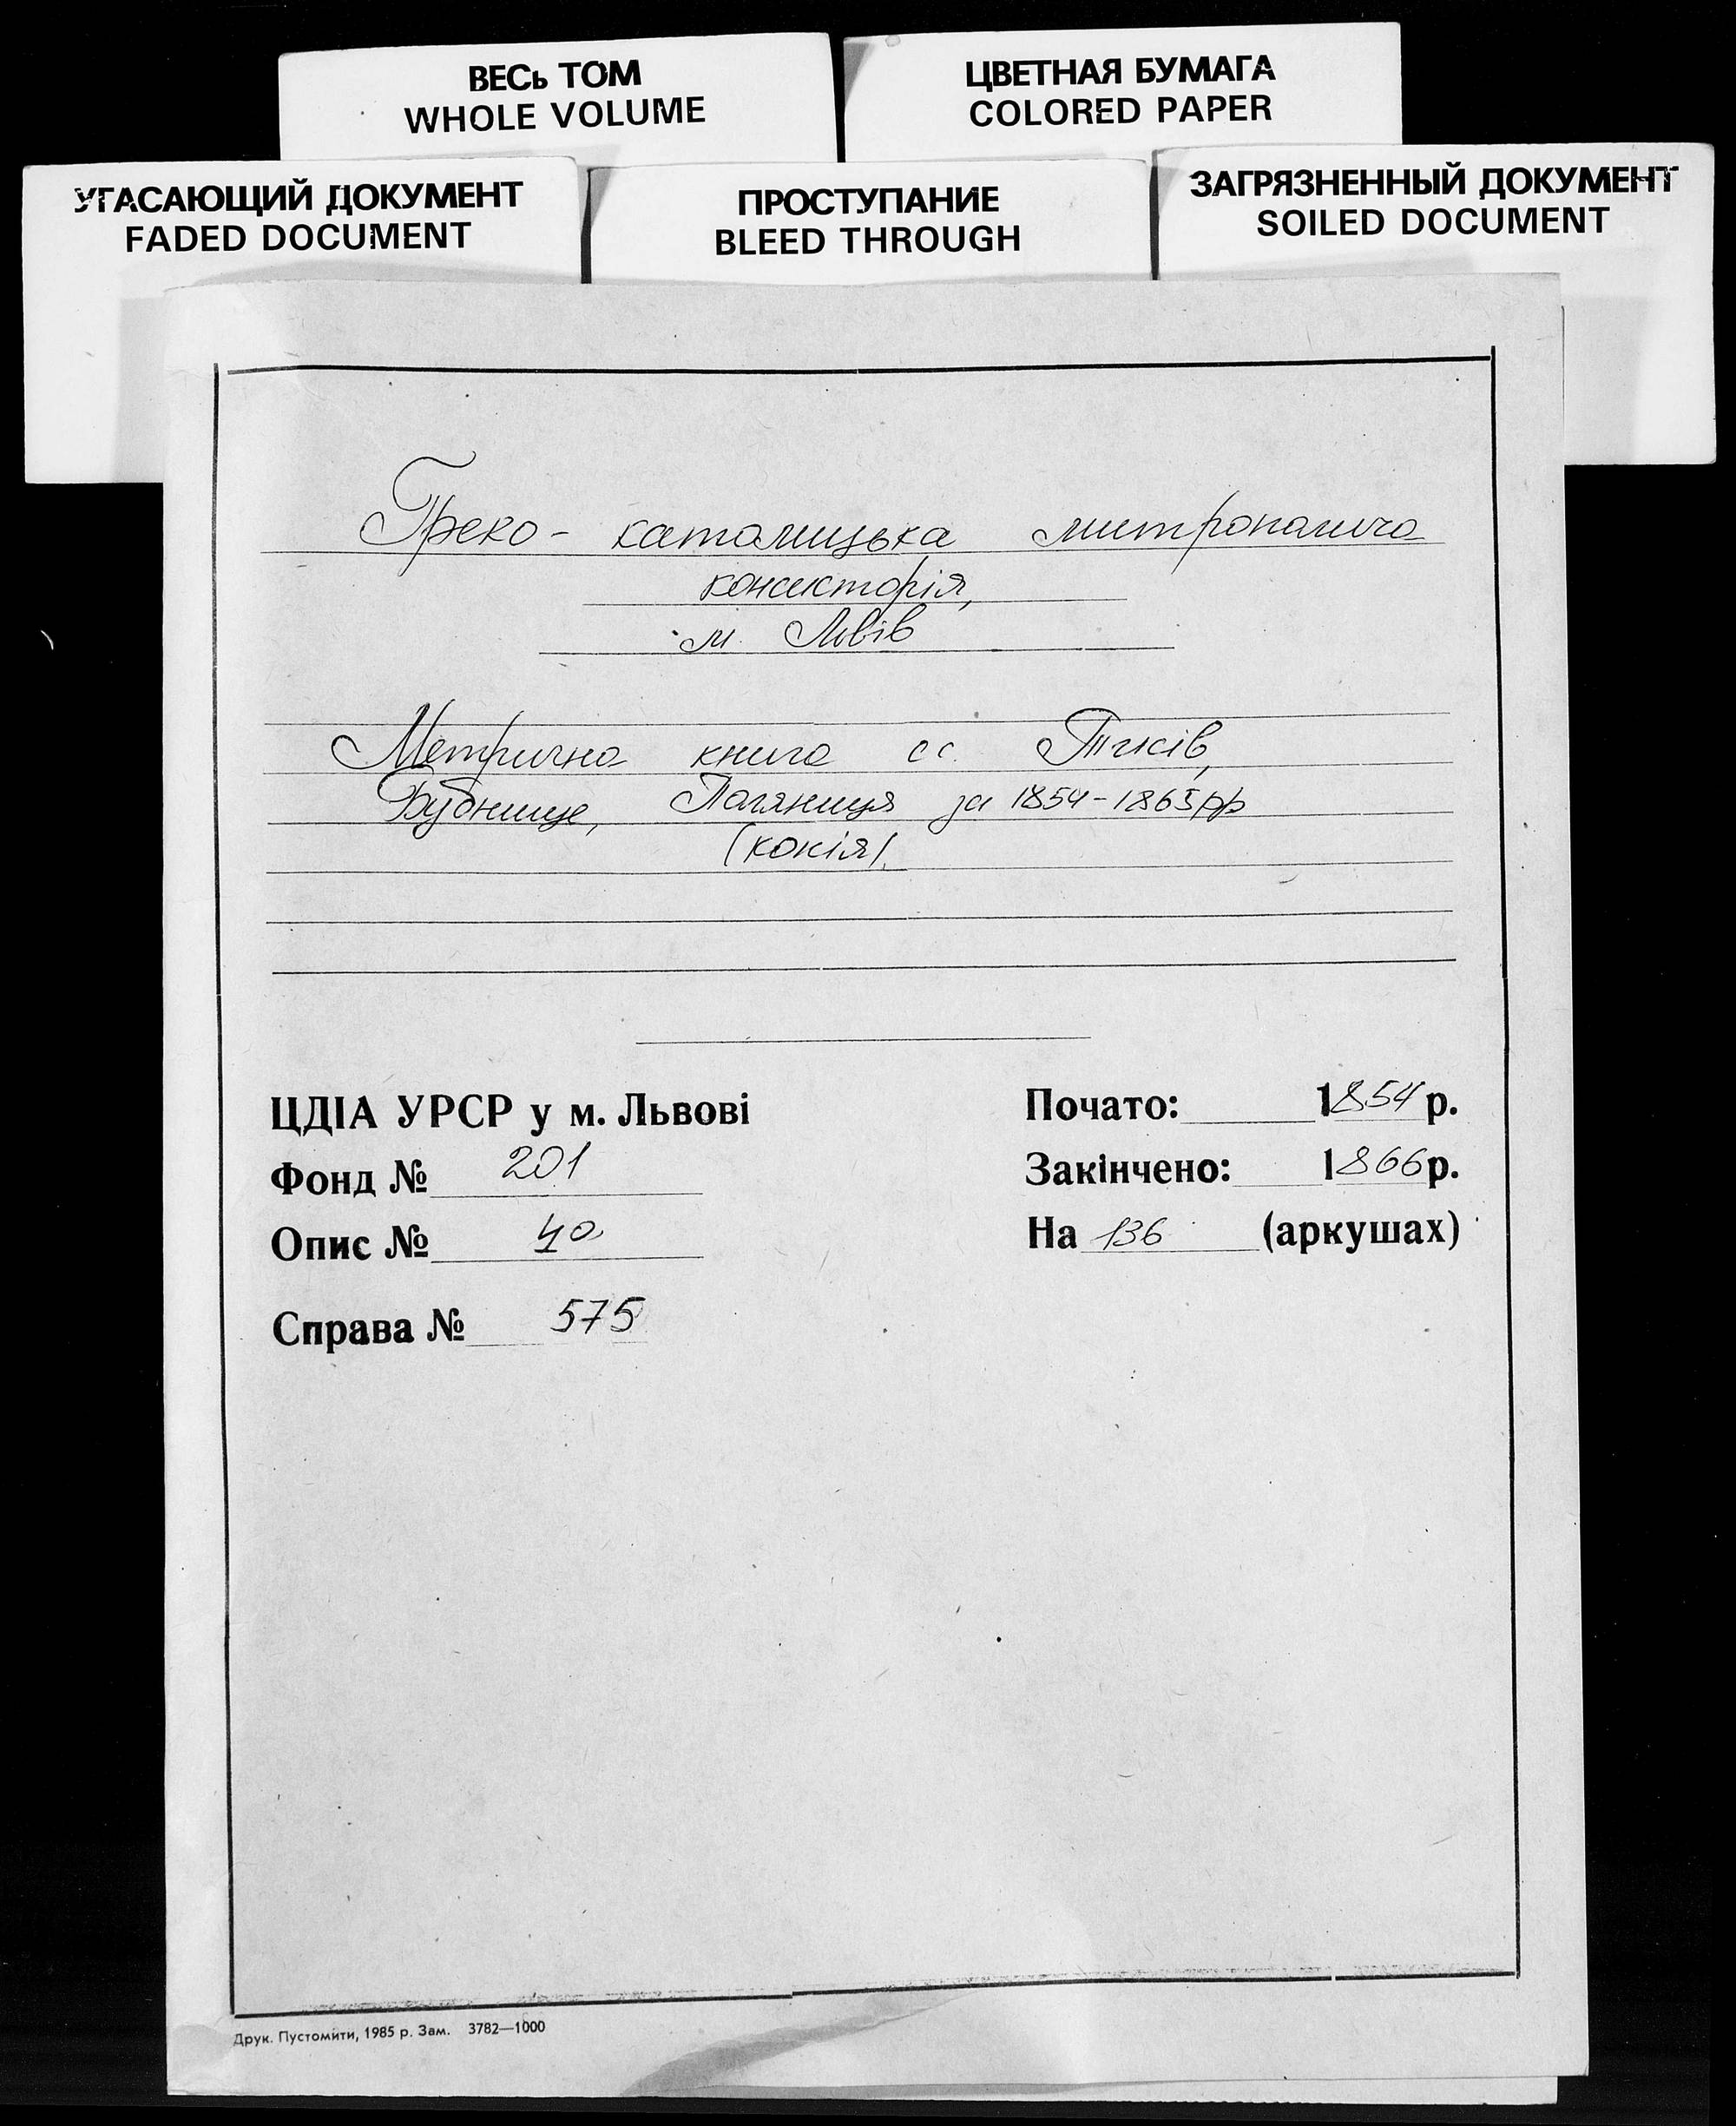 ВЕСЬ ТОМ
WHOLE VOLUME
ЦВЕТНАЯ БУМАГА
COLORED PAPER
УГАСАЮЩИЙ ДОКУМЕНТ
FADED DOCUMENT
ПРОСТУПАНИЕ
BLEED THROUGH
ЗАГРЯЗНЕННЫЙ ДОКУМЕНТ
SOILED DOCUMENT
Греко-католицька митрополича
консисторія,
м. Львів
Метрична книга сс. Тисів,
Бубнище, Поляниця за 1854-1865рр
(копія).
ЦДІА УРСР у м. Львові
Фонд № 201
Опис № 4а
Справа № 575
Почато: 1854 р.
Закінчено: 1866 р.
На 136 (аркушах)
Друк. Пустомити, 1985 р. Зам. 3782—1000